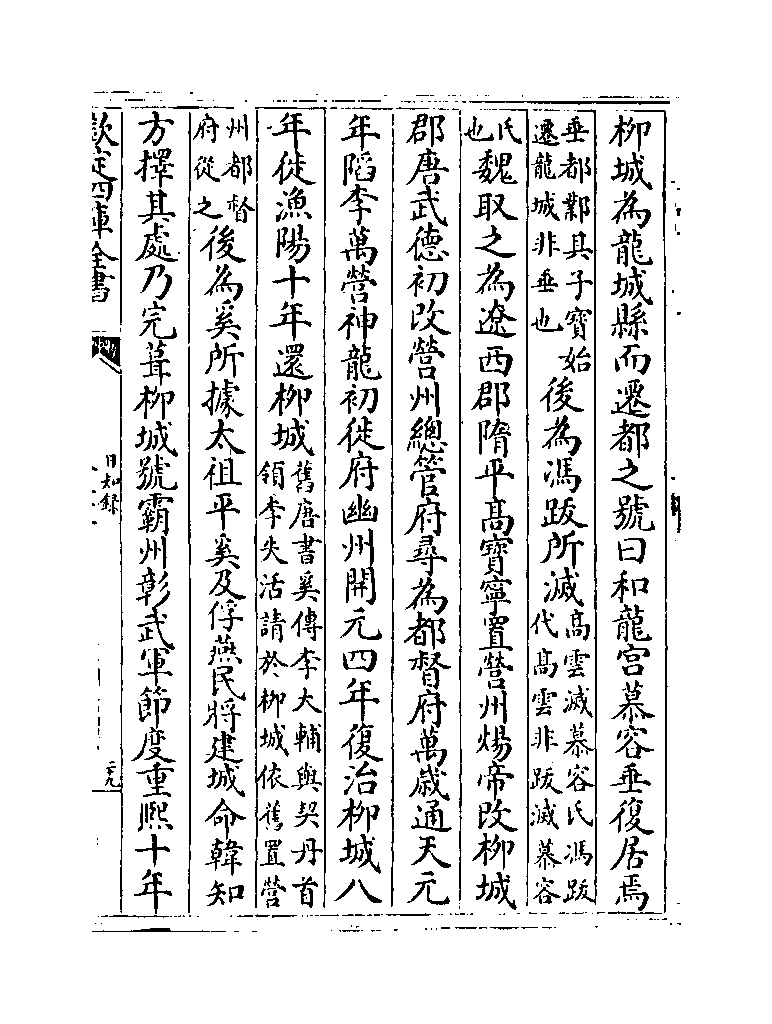 柳城為龍城縣而遷都之號曰和龍宮慕容垂復居焉
垂都鄴其子寶始遷龍城非垂也後為馮跋所滅高雲滅慕容氏馮跋代高雲非跋滅慕容
氏也魏取之為遼西郡隋平高寶寧置營州煬帝改柳城
郡唐武德初改營州總管府尋為都督府萬歲通天元
年䧟李萬營神龍初徙府幽州開元四年復治柳城八
年徙漁陽十年還柳城舊唐書奚傳李大輔與契丹首領李失活請於柳城依舊置營
州都督府從之後為奚所據太祖平奚及俘燕民將建城命韓知
方擇其處乃完葺柳城號霸州彰武軍節度重熙十年
欽定四庫全書
日知錄
二九